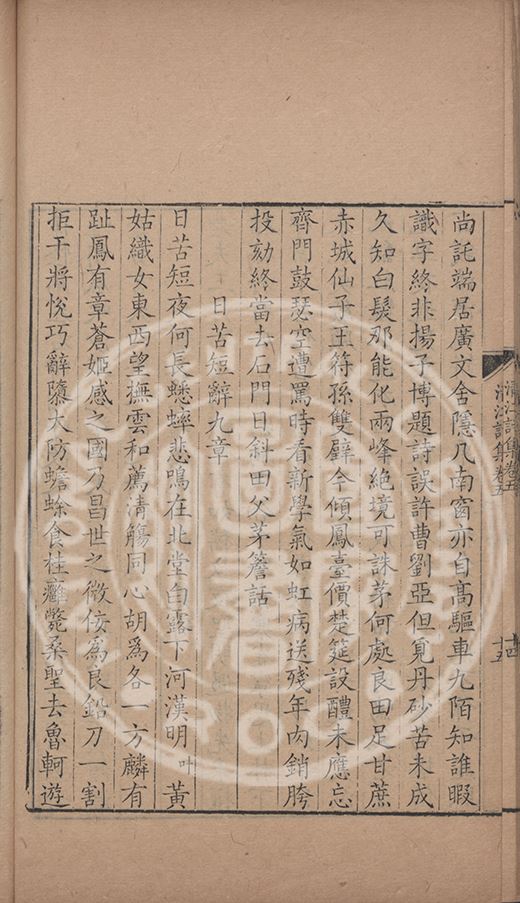 尚託端居廣文舍隱几南窗亦自高驅車九陌知誰暇
識字終非揚子博題詩誤許曹劉亞但覓丹砂苦未成
久知白髮那能化兩峰絕境可誅茅何處良田足甘蔗
赤城仙子王符孫雙璧今傾鳳臺價楚筵設醴未應忘
齊門鼓瑟空遭罵時看新學氣如虹病送殘年肉銷胯
投劾終當去石門日斜田父茅簷話
日苦短辭九章
日苦短夜何長蟋蟀悲鳴在北堂白露下河漢明叶黃
姑織女東西望撫雲和薦清觴同心胡為各一方麟有
趾鳳有章蒼姬感之國乃昌世之微佞為良鉛刀一割
拒干將悅巧辭隳大防蟾蜍食桂癰斃桑聖去魯軻遊